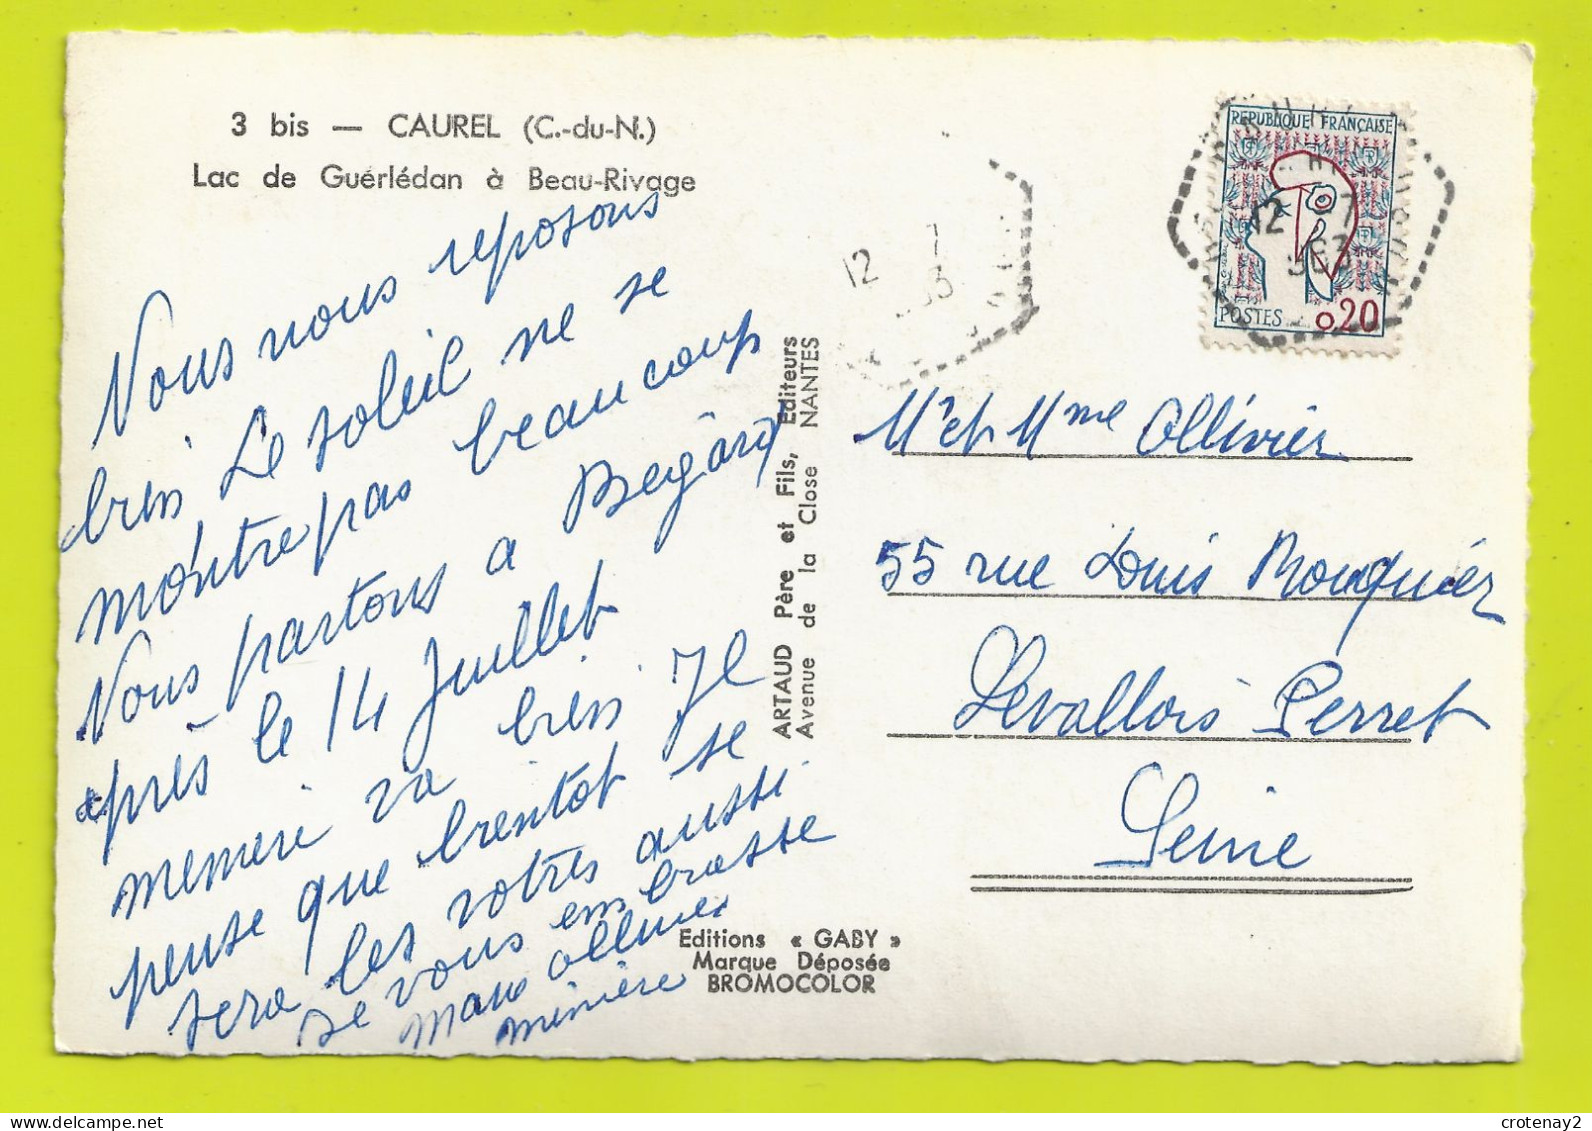 3 bis — CAUREL (C.-du-N.)
Lac de Guérlédan à Beau-Rivage
Nous nous reposons
bien Le soleil ne se
montre pas beaucoup
Nous partons a Begard
après le 14 Juillet
memere va bien Je
pense que bientot se
sera les votres aussi
Je vous embrasse
Ollivier
mémère
ARTAUD Père et Fils, Editeurs
Avenue de la Close NANTES
Editions « GABY »
Marque Déposée
BROMOCOLOR
REPUBLIQUE FRANÇAISE
POSTES 0,20
12 07
12 7
Mr et Mme Ollivier
55 rue Louis Rouquier
Levallois Perret
Seine
crotenay2